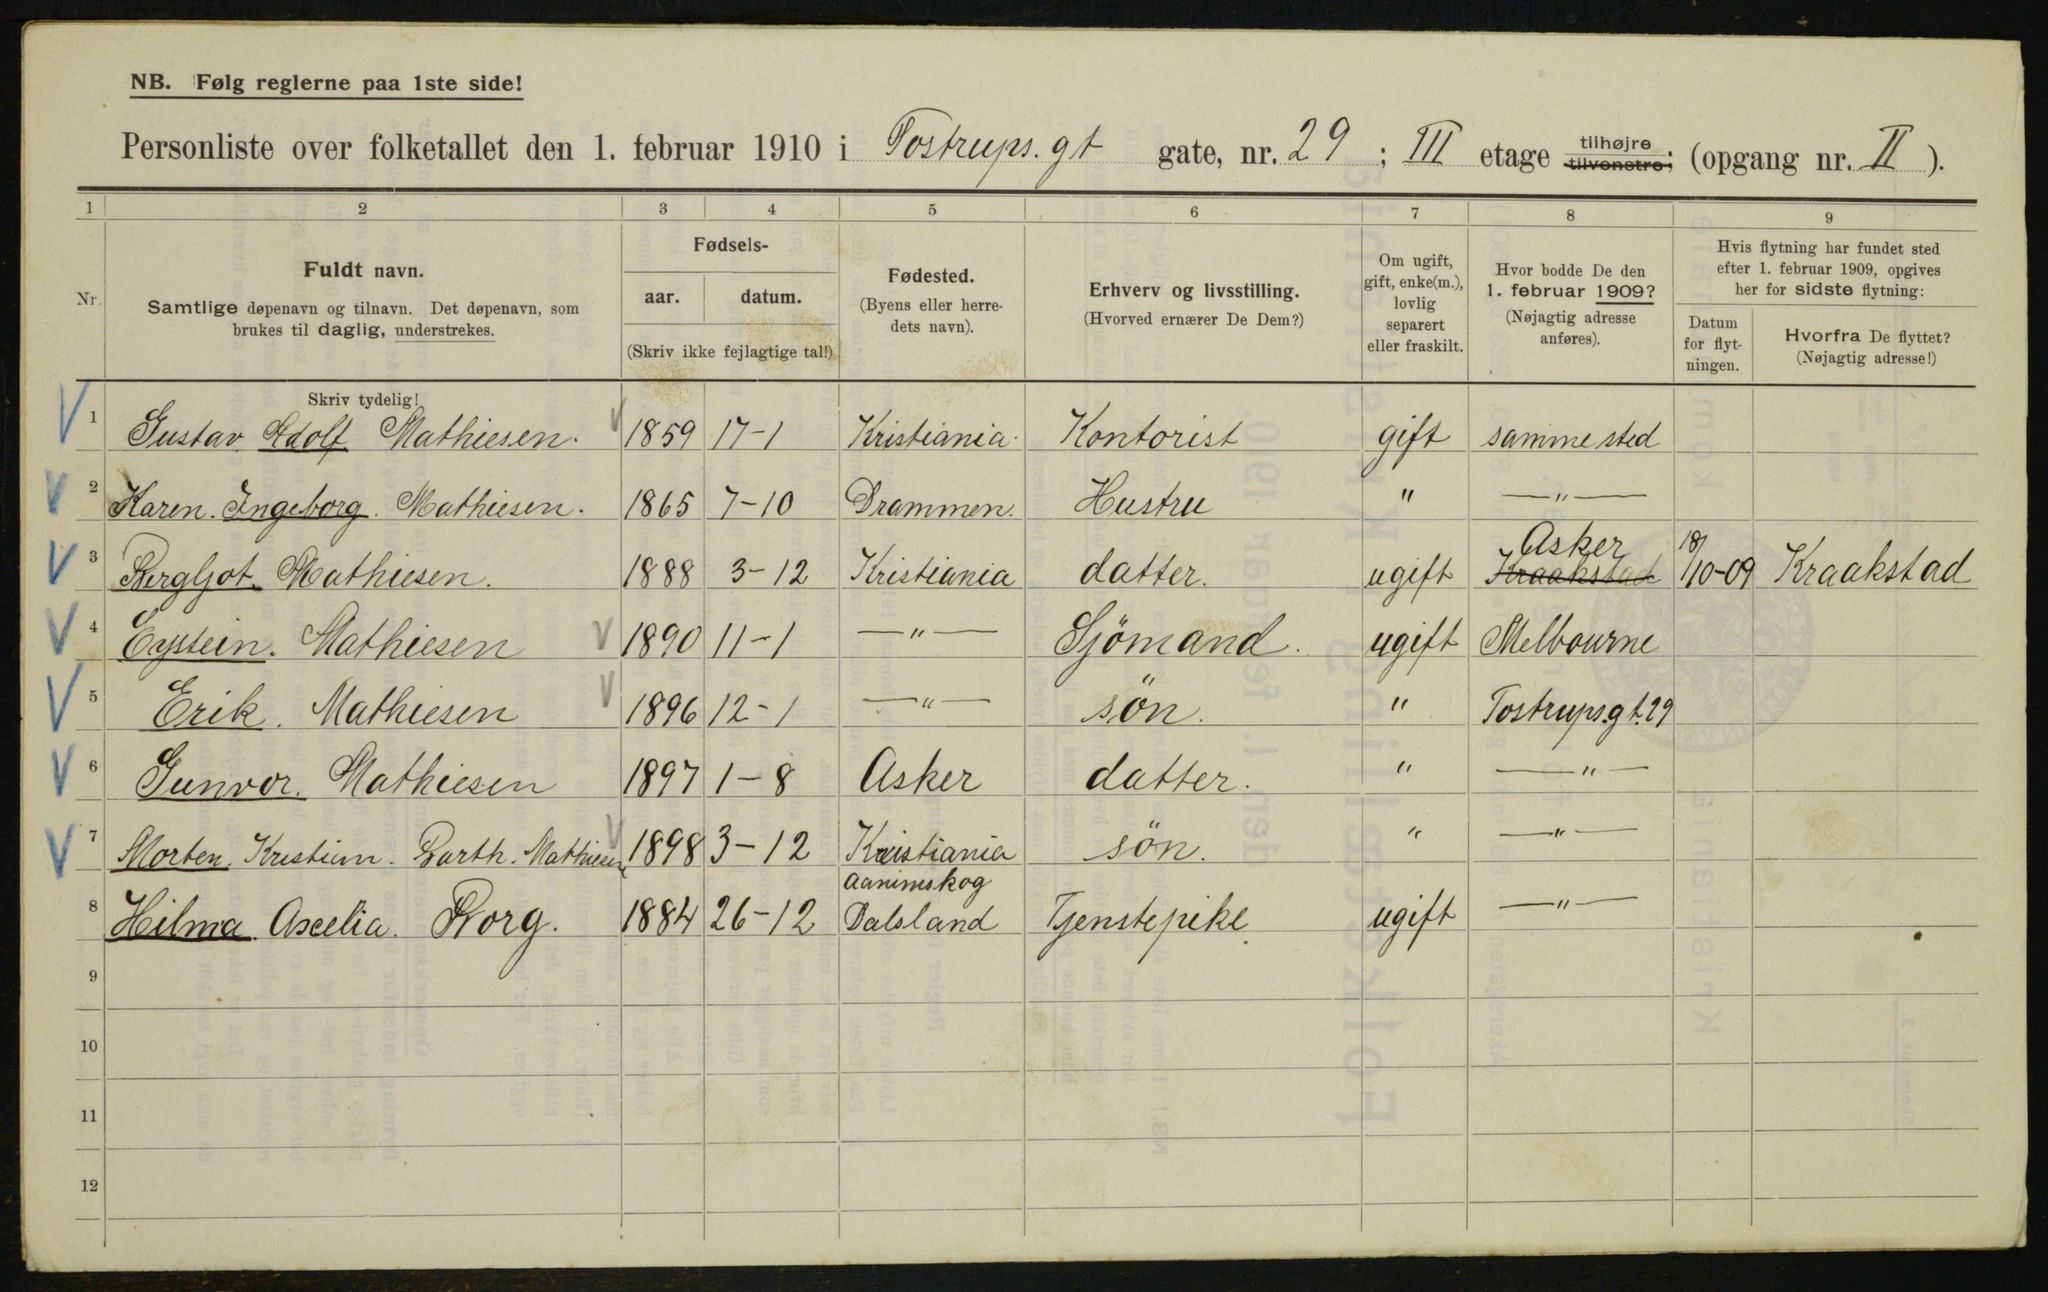 NB. Følg reglerne paa 1ste side!
Personliste over folketallet den 1. februar 1910 i Tostrups.gt gate, nr. 29; III etage tilhøjre tilvenstre; (opgang nr. II).
1 2 3 4 5 6 7 8 9
Nr.
Fuldt navn.
Samtlige døpenavn og tilnavn. Det døpenavn, som
brukes til daglig, understrekes.
Fødsels-
aar. datum.
(Skriv ikke fejlagtige tal!)
Fødested.
(Byens eller herre-
dets navn).
Erhverv og livsstilling.
(Hvorved ernærer De Dem?)
Om ugift,
gift, enke(m.),
lovlig
separert
eller fraskilt.
Hvor bodde De den
1. februar 1909?
(Nøjagtig adresse
anføres).
Hvis flytning har fundet sted
efter 1. februar 1909, opgives
her for sidste flytning:
Datum
for flyt-
ningen.
Hvorfra De flyttet?
(Nøjagtig adresse!)
Skriv tydelig!
1 Gustav Adolf Mathiesen. 1859 17-1 Kristiania. Kontorist gift samme sted
2 Karen. Ingeborg. Mathiesen. 1865 7-10 Drammen. Hustru " —"—
3 Bergljot. Mathiesen. 1888 3-12 Kristiania datter. ugift Asker Kraakstad 18/10-09 Kraakstad
4 Eystein. Mathiesen 1890 11-1 —"— Sjömand. ugift Melbourne
5 Erik. Mathiesen 1896 12-1 —"— sön. " Tostrups.gt.29
6 Gunvor. Mathiesen 1897 1-8 Asker datter. " —"—
7 Morten. Kristian. Barth. Mathiesen 1898 3-12 Kristiania sön. " —"—
Aanimskog
8 Hilma. Axelia. Borg. 1884 26-12 Dalsland Tjenstepike. ugift —"—
9
10
11
12